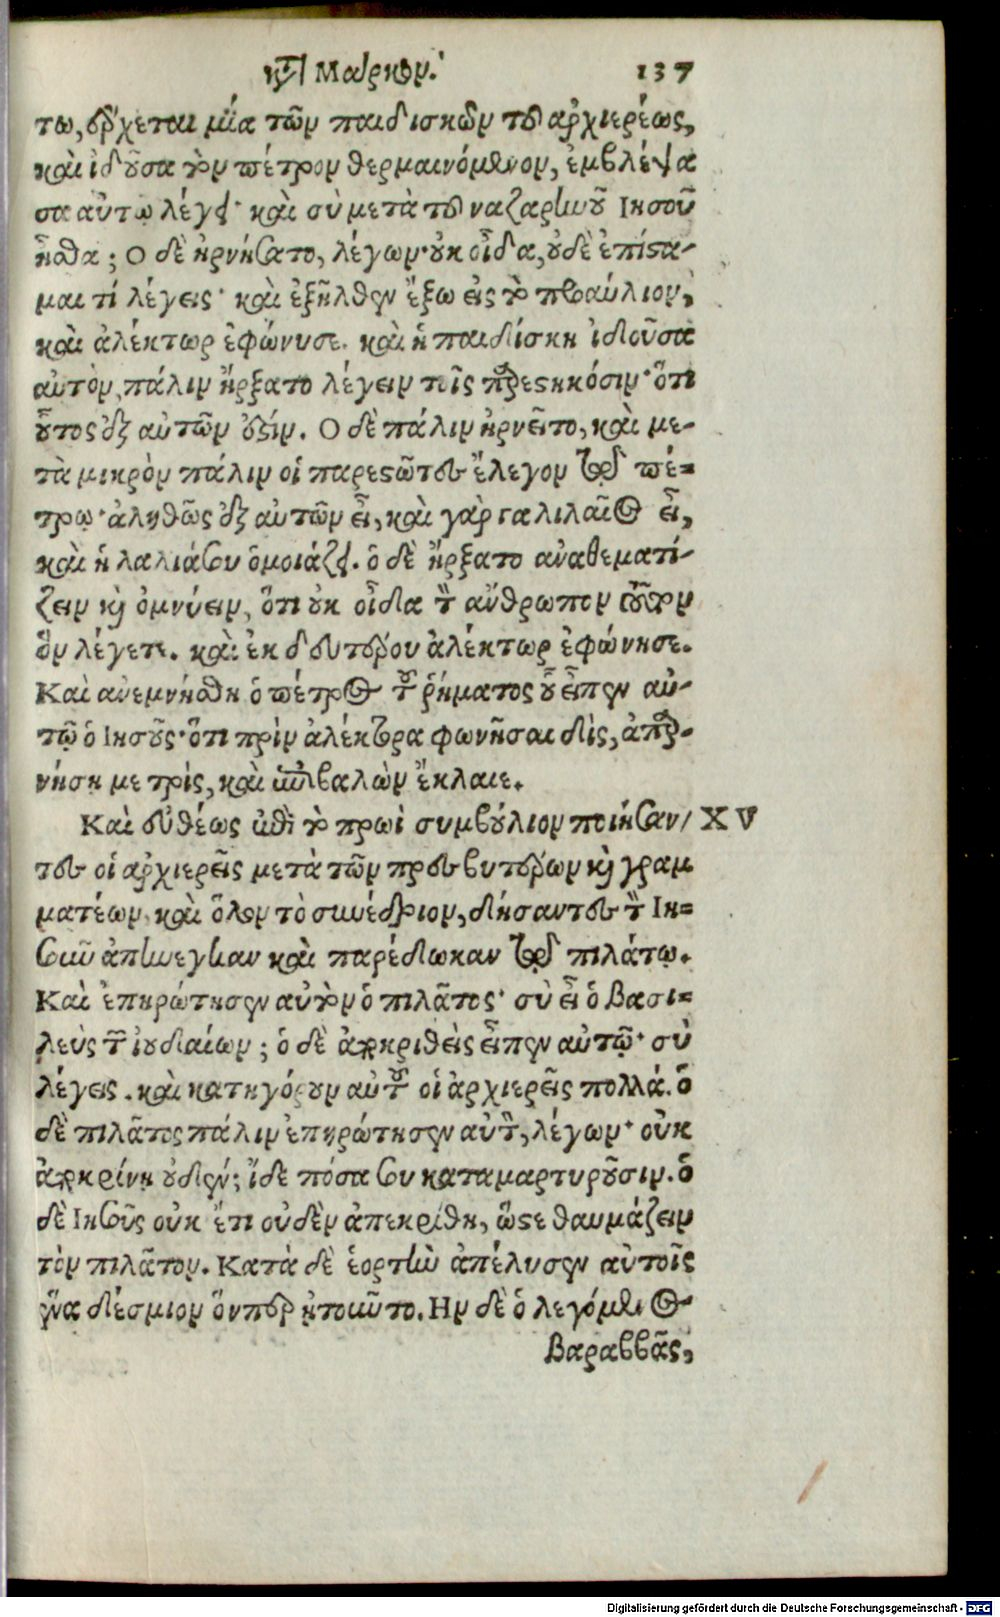 κτ Μάρκον. 137
τω, ἔρχεται μία τῶν παιδισκῶν τοῦ ἀρχιερέως,
καὶ ἰδοῦσα τὸν πέτρον θερμαινόμενον, ἐμβλέψα
σα αὐτῷ λέγει· καὶ σὺ μετὰ τοῦ ναζαρηνοῦ Ιησοῦ
ἦσθα; Ο δὲ ἠρνήσατο, λέγων· οὐκ οἶδα, οὐδὲ ἐπίστα-
μαι τί λέγεις· καὶ ἐξῆλθεν ἔξω εἰς τὸ προαύλιον,
καὶ ἀλέκτωρ ἐφώνυσε. καὶ ἡ παιδίσκη ἰδοῦσα
αὐτὸν, πάλιν ἤρξατο λέγειν τοῖς παρεστηκόσιν· ὅτι
οὗτος ἐξ αὐτῶν ἐστίν. Ο δὲ πάλιν ἠρνεῖτο, καὶ με-
τὰ μικρὸν πάλιν οἱ παρεστῶτες ἔλεγον τῷ πέ-
τρῳ· ἀληθῶς ἐξ αὐτῶν εἶ, καὶ γὰρ γαλιλαῖος εἶ,
καὶ ἡ λαλιά σου ὁμοιάζει. ὁ δὲ ἤρξατο αναθεματί-
ζειν καὶ ὀμνύειν, ὅτι οὐκ οἶδα τὸν ἄνθρωπον τοῦτον
ὃν λέγετε. καὶ ἐκ δευτέρου ἀλέκτωρ ἐφώνησε.
Καὶ ανεμνήσθη ὁ πέτρος τοῦ ῥήματος οὗ εἶπεν αὐ-
τῷ ὁ Ιησοῦς· ὅτι πρὶν ἀλέκτορα φωνῆσαι δὶς, ἀπαρ-
νήσῃ με τρὶς, καὶ ἐπιβαλὼν ἔκλαιε.
Καὶ εὐθέως ἐπὶ τὸ πρωὶ συμβούλιον ποιήσαν/ XV
τες οἱ ἀρχιερεῖς μετὰ τῶν πρεσβυτέρων καὶ γραμ
ματέων, καὶ ὅλον τὸ συνέδριον, δήσαντες τὸν Ιη-
σοῦν ἀπήνεγκαν καὶ παρέδωκαν τῷ πιλάτῳ.
Καὶ ἐπηρώτησεν αὐτὸν ὁ πιλᾶτος· σὺ εἶ ὁ βασι-
λεὺς τῶν ἰουδαίων; ὁ δὲ ἀποκριθεὶς εἶπεν αὐτῷ· σὺ
λέγεις. καὶ κατηγόρουν αὐτοῦ οἱ ἀρχιερεῖς πολλά. ὁ
δὲ πιλᾶτος πάλιν ἐπηρώτησεν αὐτὸν, λέγων· οὐκ
ἀποκρίνῃ οὐδέν; ἴδε πόσα σου καταμαρτυροῦσιν. ὁ
δὲ Ιησοῦς οὐκ ἔτι οὐδὲν ἀπεκρίθη, ὥστε θαυμάζειν
τὸν πιλᾶτον. Κατὰ δὲ ἑορτὴν ἀπέλυσεν αὐτοῖς
ἕνα δέσμιον ὅνπερ ᾐτοῦντο. Ην δὲ ὁ λεγόμενος
Βαραββᾶς,
Digitalisierung gefördert durch die Deutsche Forschungsgemeinschaft - DFG